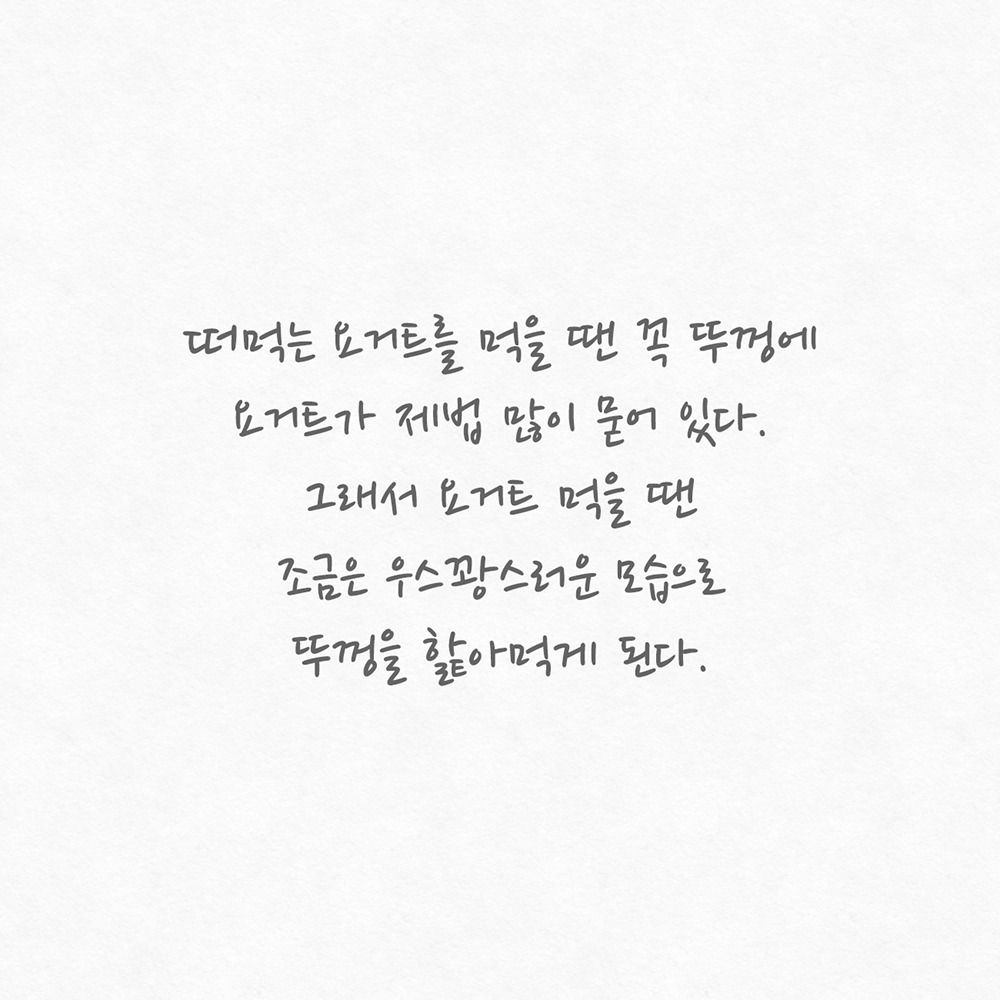 떠먹는 요거트를 먹을 땐 꼭 뚜껑에
요거트가 제법 많이 묻어 있다.
그래서 요거트 먹을 땐
조금은 우스꽝스러운 모습으로
뚜껑을 핥아먹게 된다.